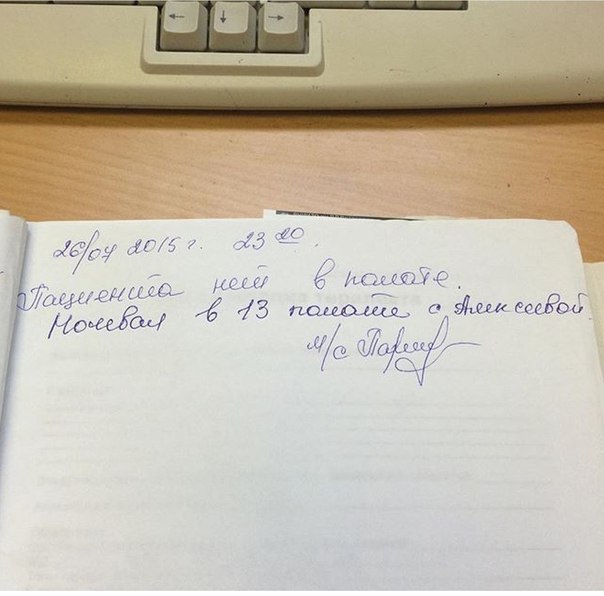 26/07 2015 г. 23 20.
Пациента нет в палате.
Ночевал в 13 палате с Алексеевой.
м/с